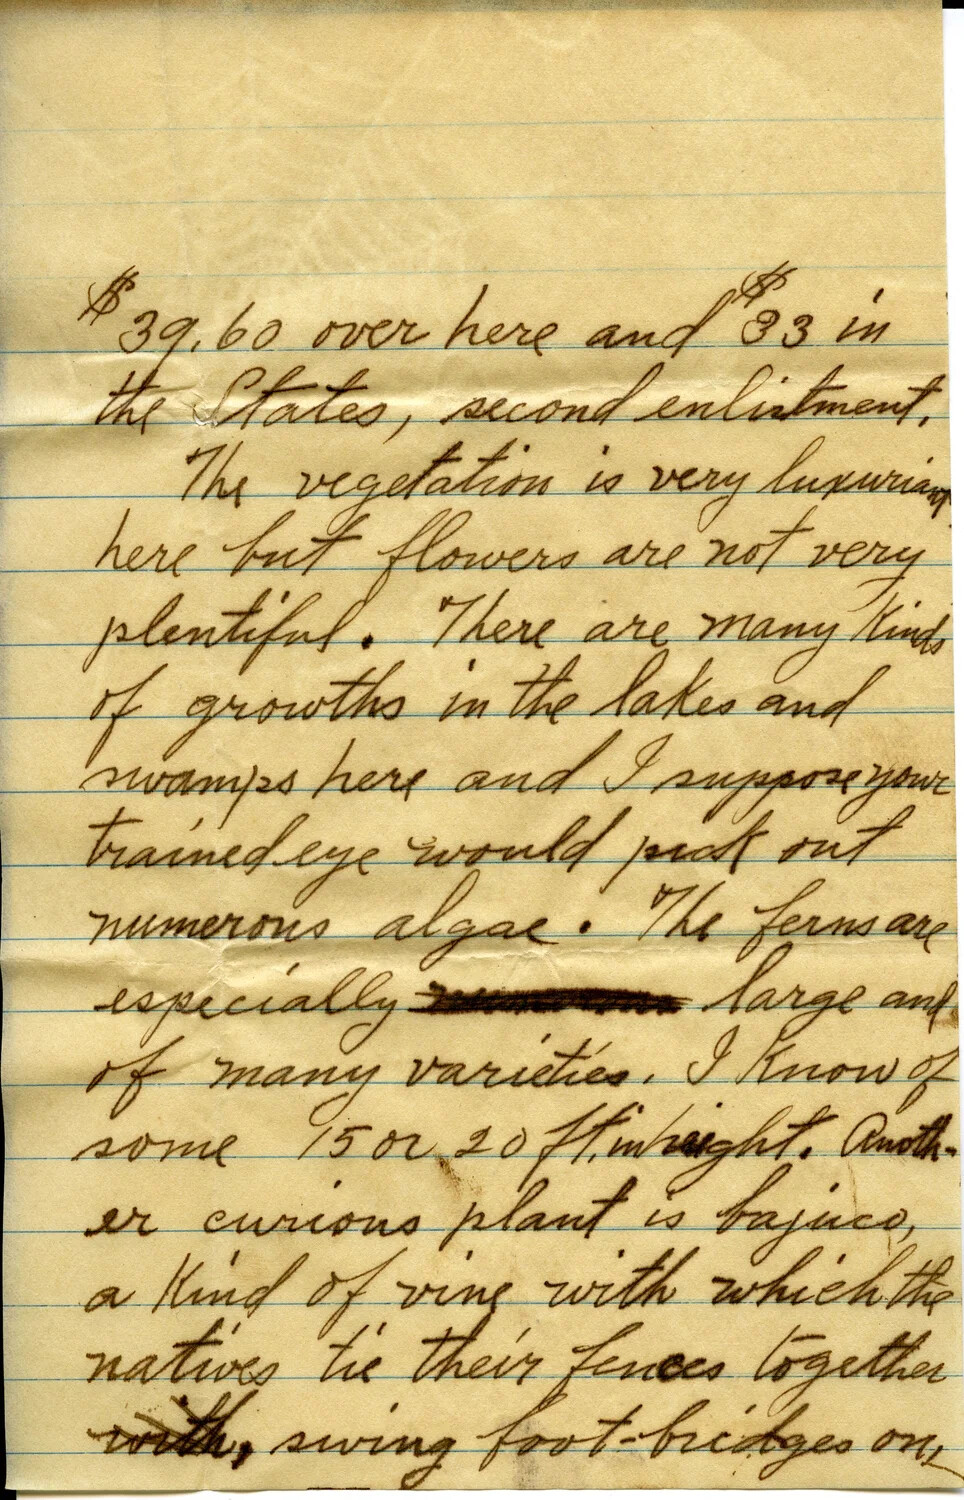 $39.60 over here and $33 in
the States, second enlistment.
The vegetation is very luxuriant
here but flowers are not very
plentiful. There are many kinds
of growths in the lakes and
swamps here and I suppose your
trained eye would pick out
numerous algae. The ferns are
especially large and
of many varieties. I know of
some 15 or 20 ft. in height. Anoth-
er curious plant is bajuco,
a kind of vine with which the
natives tie their fences together
with, swing foot-bridges on,